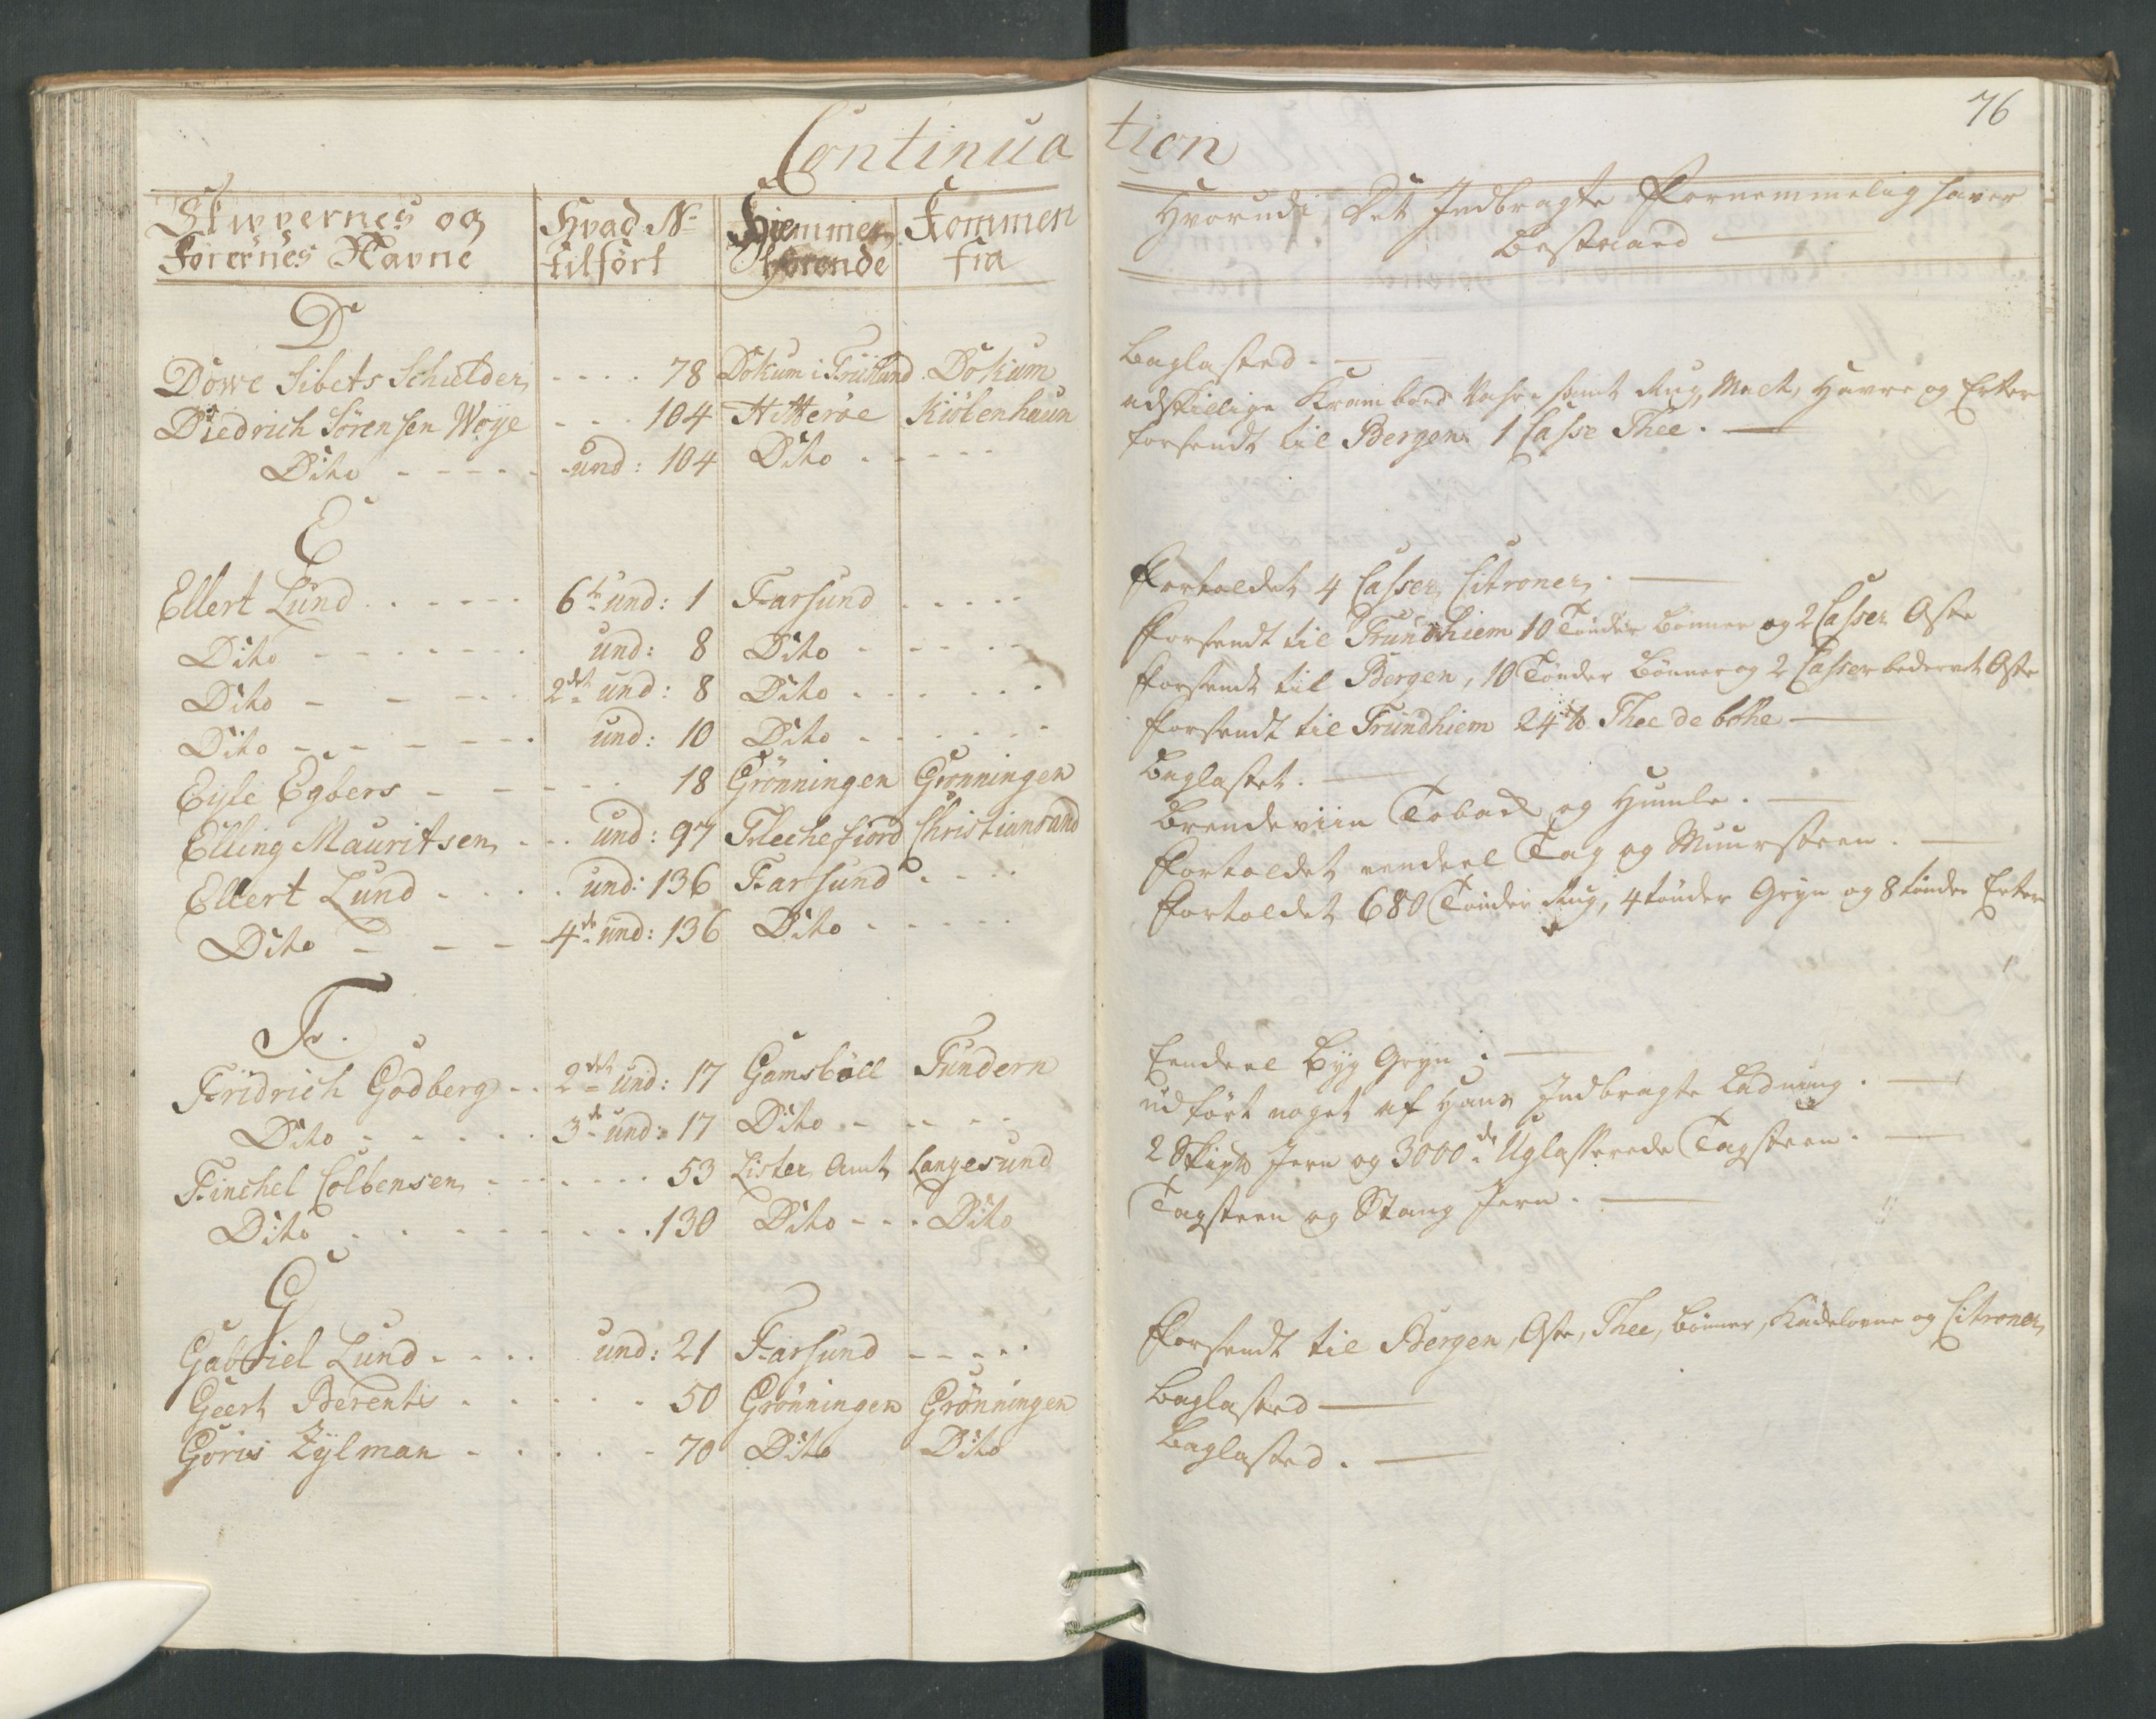 Continuation
76
Skippernes og Förernes Navne | Hvad No tilfört | Hiemme hörende | Kommen fra | Hvorudi Det Indbragte Fornemmelig haver Bestaaed
D
Döwe Sibets Schulder | 78 | Dokum i Friisland | Dokum | Baglasted.
Diedrich Sörensen Woye | 104 | Hitteröe | Kiöbenhaun | adskillige Kramboed Vahre samt Rug, Malt, Havre og Erter
Dito | und: 104 | Dito | forsendt til Bergen 1 Casse Thee.
E
Ellert Lund | 6te und: 1 | Farsund | Fortoldet 4 Casser Citroner.
Dito | und: 8 | Dito | Forsendt til Trundhiem 10 Tönder Bönner og 2 Casser Oste
Dito | 2det und: 8 | Dito | Forsendt til Bergen, 10 Tönder Bönner og 2 Casser bedervet Oste
Dito | und: 10 | Dito | Forsendt til Trundhiem 24 ℔ Thee de bohe
Eyle Egbers | 18 | Grönningen | Grönningen | Baglastet.
Elling Mauritsen | und: 97 | Flechefiord | Christiansand | Brendeviin Toback og Humle.
Ellert Lund | und: 136 | Farsund | Fortoldet eendeel Tag og Muursteen.
Dito | 4de und: 136 | Dito | Fortoldet 680 Tönder Rug, 4 tönder Gryn og 8 tönder Erter
F.
Fridrich Godberg | 2det und: 17 | Gamsböll | Tundern | Eendeel Byg Gryn.
Dito | 3de und: 17 | Dito | udfört noget af Hans Indbragte Ladning.
Finchel Colbensen | 53 | Lister Amt | Langesund | 2 Skip℔ Jern og 3000de Uglasserede Tagsteen.
Dito | 130 | Dito | Dito | Tagsteen og Stang Jern.
G
Gabriel Lund | und: 21 | Farsund | Forsendt til Bergen, Oste, Thee, Bönner, og Citroner
Geert Berents | 50 | Grönningen | Grönningen | Baglasted
Göris Zylman | 70 | Dito | Dito | Baglasted.